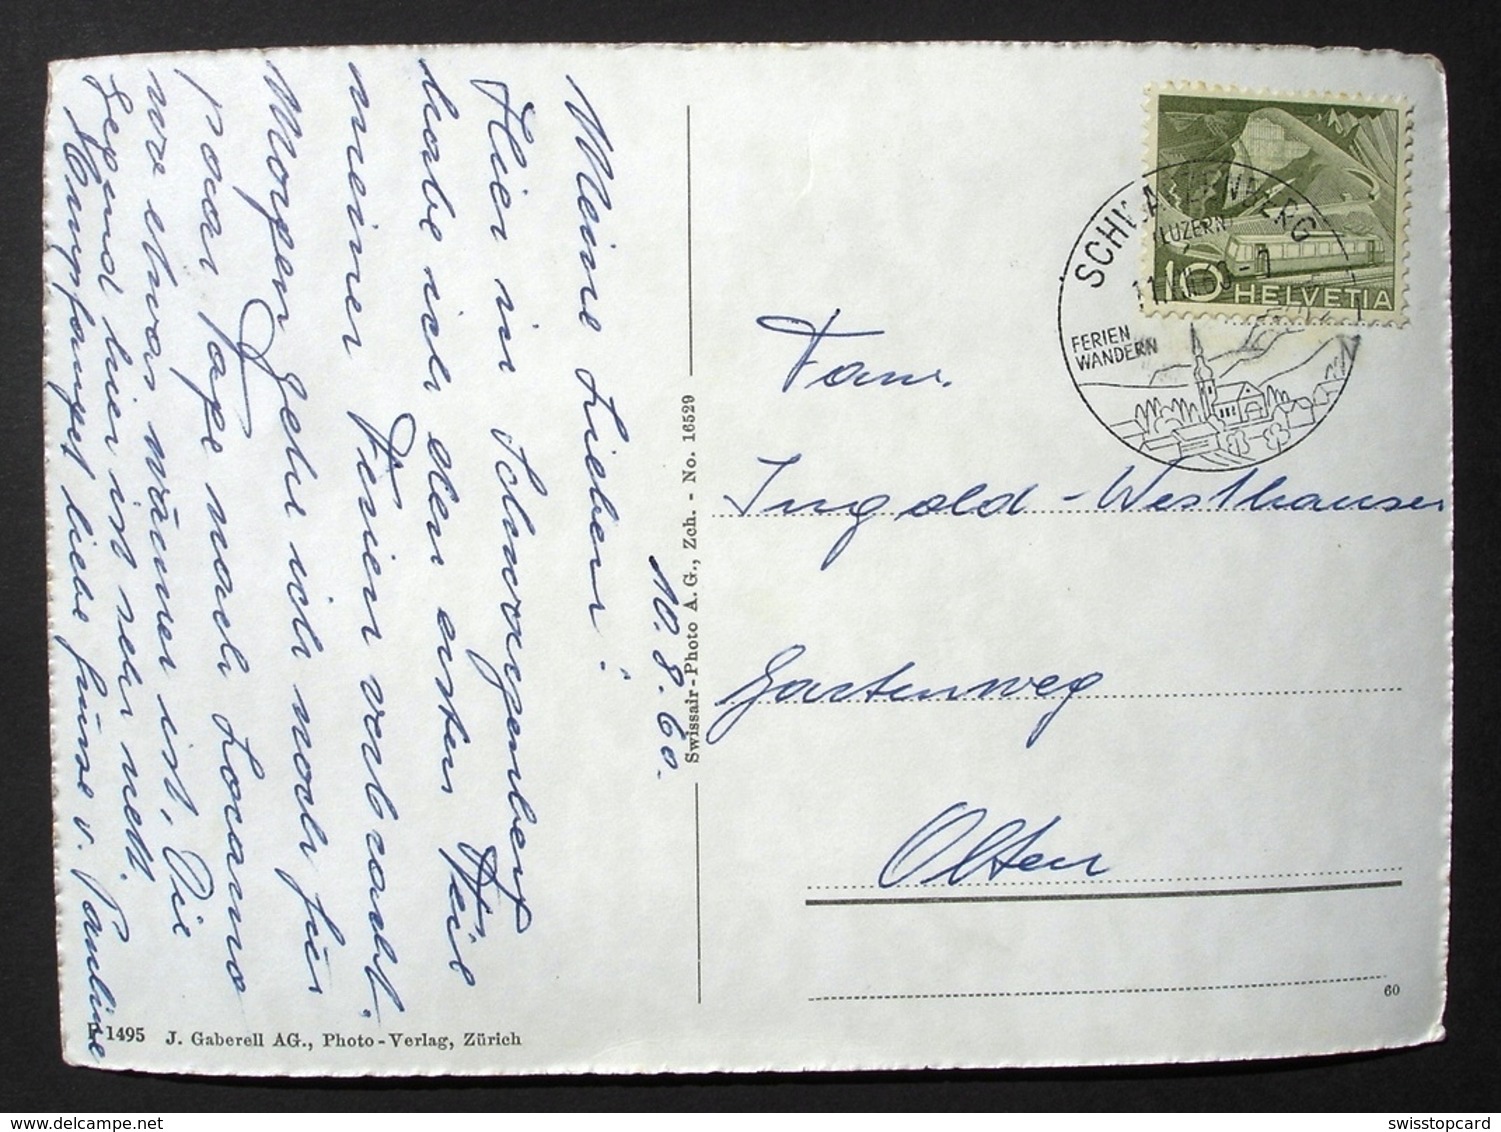 10.8.60.
Meine Lieben!
Hier in Schwarzenberg
habe ich den ersten Teil
meiner Ferien verbracht.
Morgen gehe ich noch für
paar Tage nach Locarno
wo etwas wärmer ist. Die
Gegend hier ist sehr nett.
Empfanget liebe Grüsse v. Pauline
Swissair-Photo A. G., Zch. - No. 16529
P 1495 J. Gaberell AG., Photo-Verlag, Zürich
SCHWARZENBERG
(LUZERN)
FERIEN
WANDERN
10 HELVETIA
Fam.
Ingold-Westhauser
Gartenweg
Olten
60
delcampe.net
swisstopcard